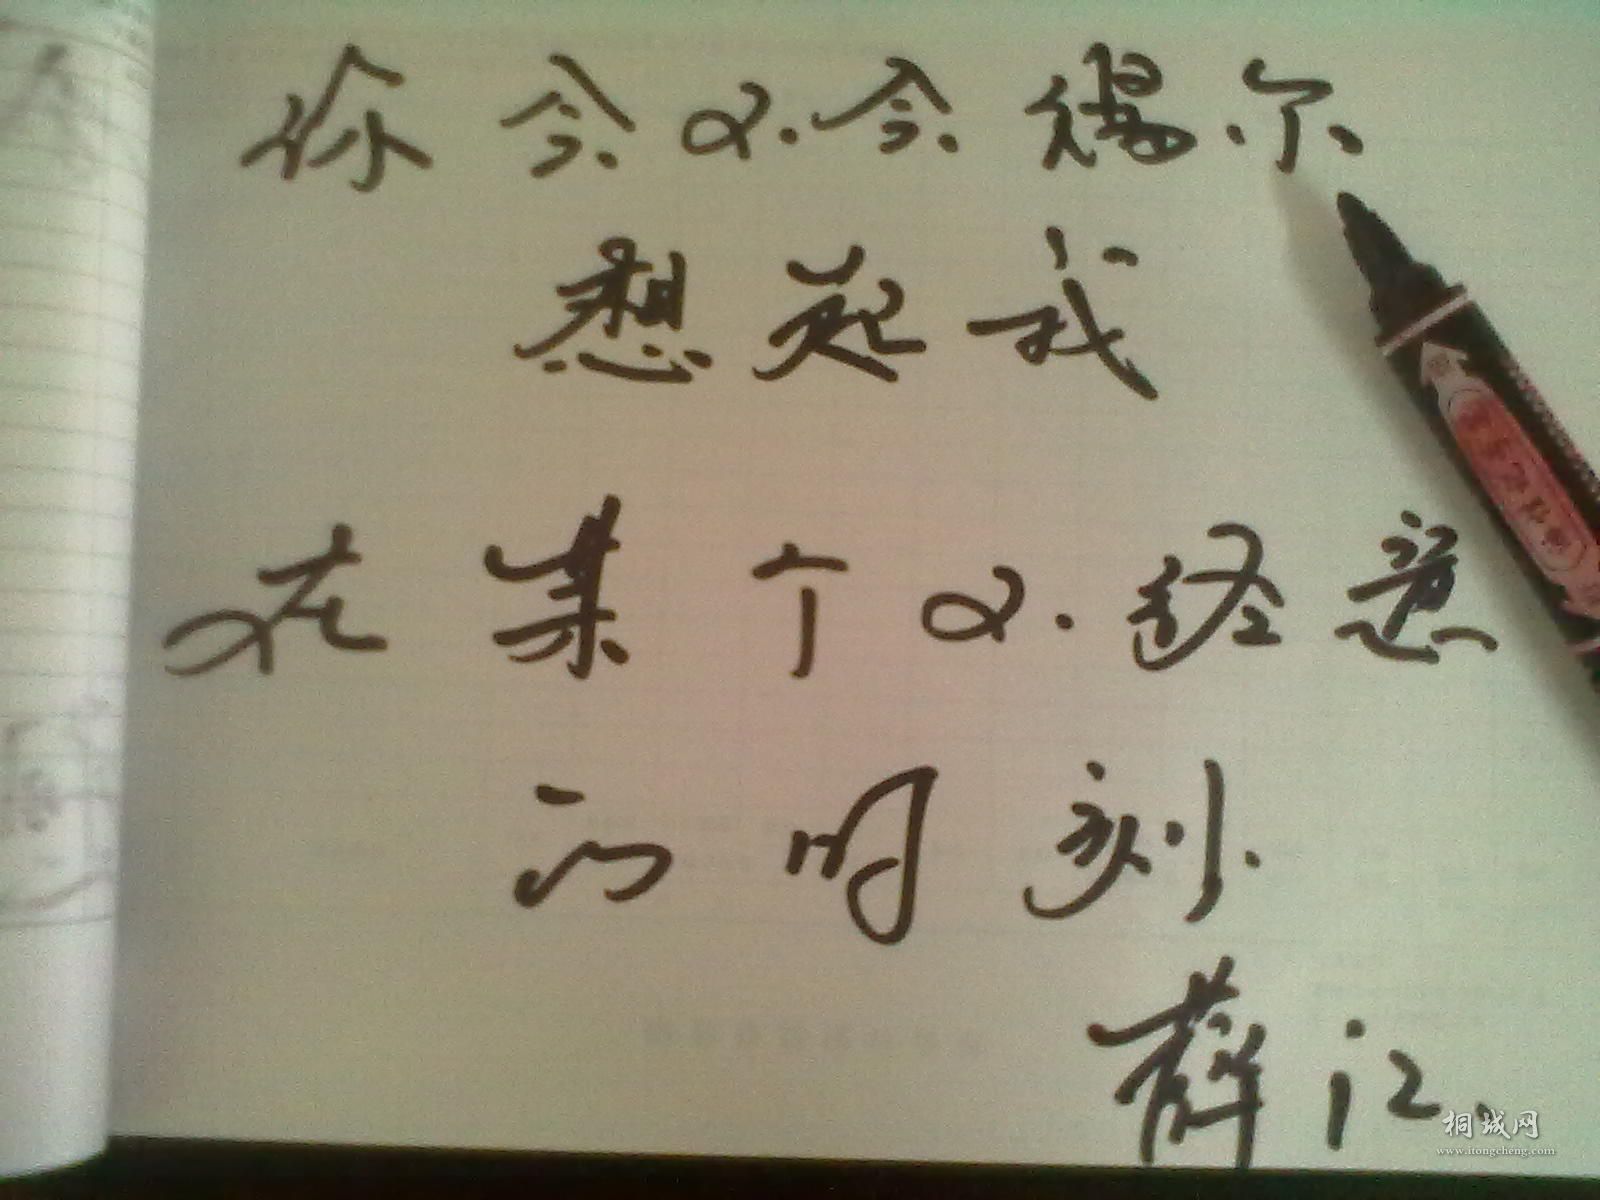 你会不会偶尔
想起我
在某个不经意
的时刻
薛江
桐城网
www.itongcheng.com